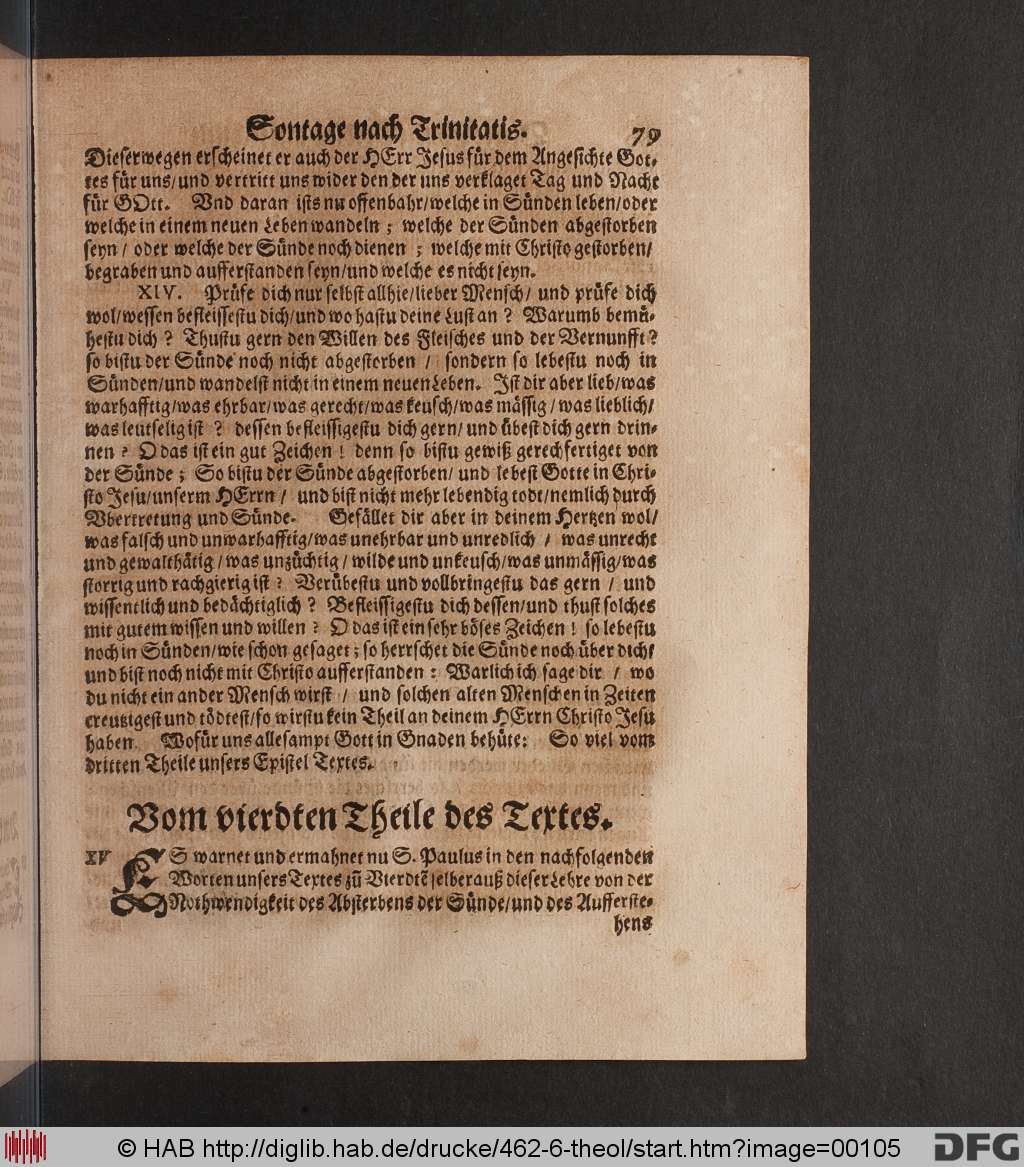 Sontage nach Trinitatis. 79
Dieserwegen erscheinet er auch der HErr Jesus für dem Angesichte Got-
tes für uns/und vertritt uns wider den der uns verklaget Tag und Nacht
für GOtt. Vnd daran ists nu offenbahr/welche in Sünden leben/oder
welche in einem neuen Leben wandeln; welche der Sünden abgestorben
seyn / oder welche der Sünde noch dienen ; welche mit Christo gestorben/
begraben und aufferstanden seyn/und welche es nicht seyn.
XIV. Prüfe dich nur selbst allhie/lieber Mensch/ und prüfe dich
wol/wessen befleissestu dich/und wo hastu deine Lust an ? Warumb bemü-
hestu dich ? Thustu gern den Willen des Fleisches und der Vernunfft?
so bistu der Sünde noch nicht abgestorben / sondern so lebestu noch in
Sünden/und wandelst nicht in einem neuen Leben. Ist dir aber lieb/was
warhafftig/was ehrbar/was gerecht/was keusch/was mässig/was lieblich/
was leutselig ist ? dessen befleissigestu dich gern/und übest dich gern drin-
nen ? O das ist ein gut Zeichen! denn so bistu gewiß gerechfertiget von
der Sünde; So bistu der Sünde abgestorben/ und lebest Gotte in Chri-
sto Jesu/unserm HErrn / und bist nicht mehr lebendig todt/nemlich durch
Vbertretung und Sünde. Gefället dir aber in deinem Hertzen wol/
was falsch und unwarhafftig/was unehrbar und unredlich / was unrecht
und gewalthätig/was unzüchtig/wilde und unkeusch/was unmässig/was
storrig und rachgierig ist? Verübestu und vollbringestu das gern / und
wissentlich und bedächtiglich ? Befleissigestu dich dessen/und thust solches
mit gutem wissen und willen ? O das ist ein sehr böses Zeichen! so lebestu
noch in Sünden/wie schon gesaget; so herrschet die Sünde noch über dich/
und bist noch nicht mit Christo aufferstanden: Warlich ich sage dir / wo
du nicht ein ander Mensch wirst / und solchen alten Menschen in Zeiten
creutzigest und tödtest/so wirstu kein Theil an deinem HErrn Christo Jesu
haben. Wofür uns allesampt Gott in Gnaden behüte: So viel vom
dritten Theile unsers Epistel Textes.
Vom vierdten Theile des Textes.
XV ES warnet und ermahnet nu S. Paulus in den nachfolgenden
Worten unsers Textes zū Vierdtē selber auß dieser Lehre von der
Nothwendigkeit des Absterbens der Sünde/und des Aufferste-
hens
© HAB http://diglib.hab.de/drucke/462-6-theol/start.htm?image=00105
DFG